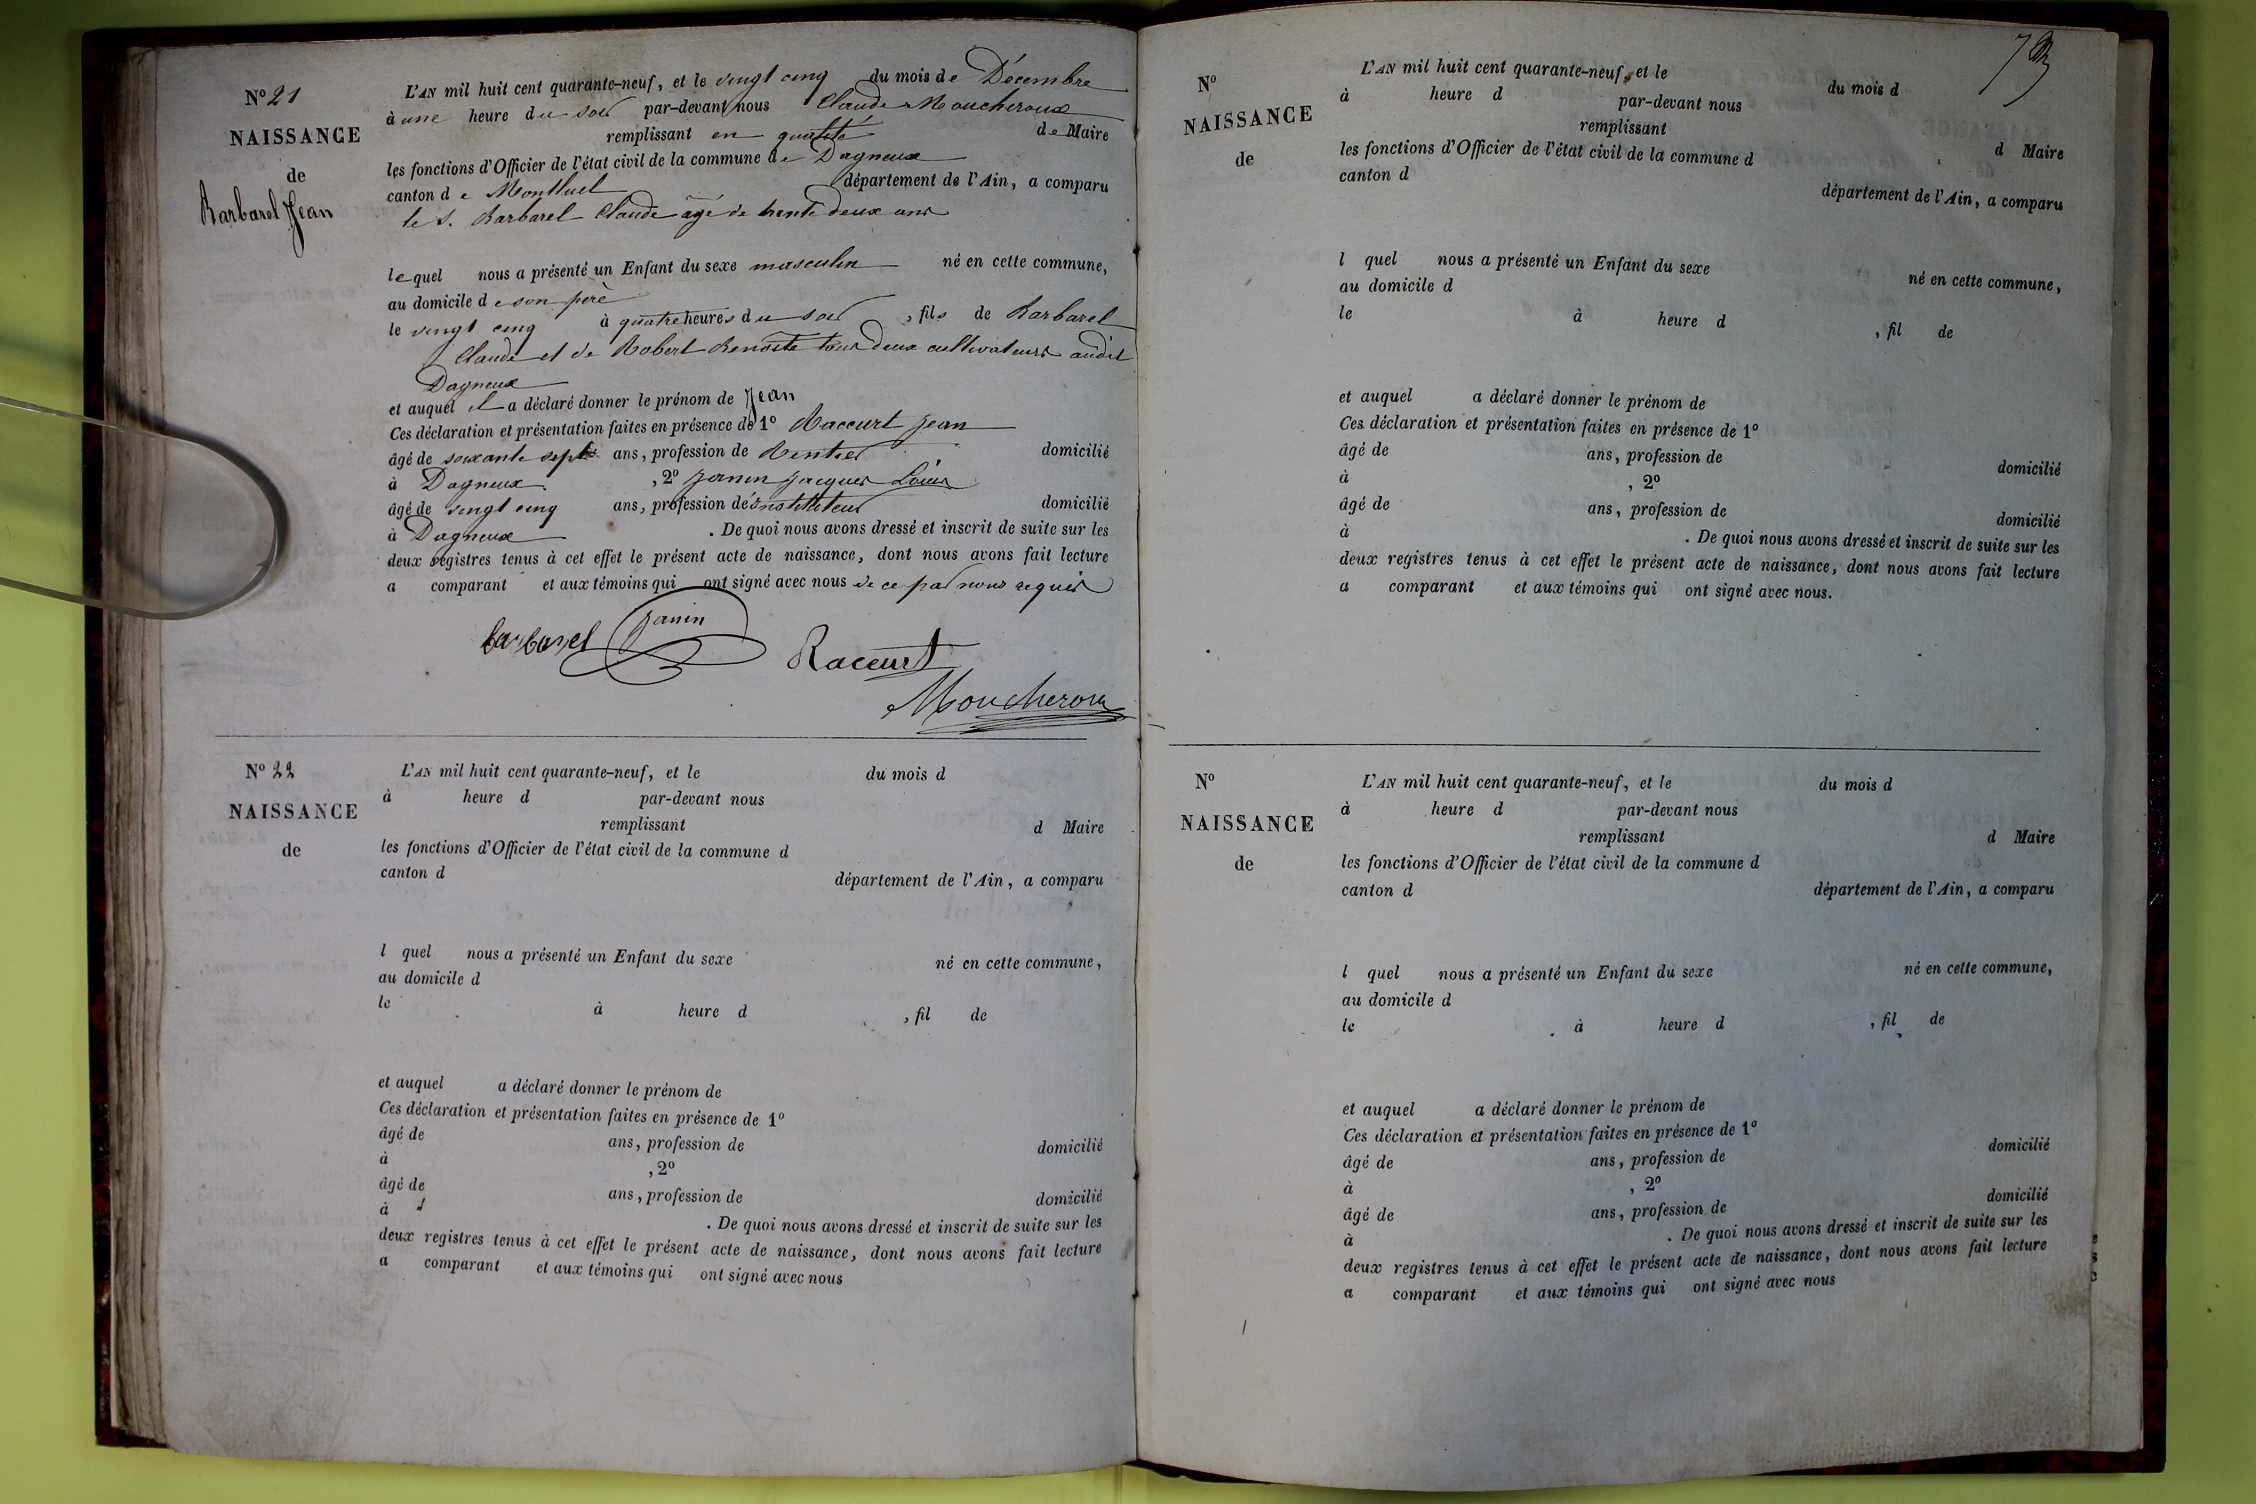 N° 21
NAISSANCE
de
Barbarel Jean
L'AN mil huit cent quarante-neuf, et le vingt cinq du mois de Décembre
à une heure du soir par-devant nous Claude Moucheroux
remplissant en qualité de Maire
les fonctions d'Officier de l'état civil de la commune de Dagneux
canton de Montluel département de l'Ain, a comparu
le S. Barbarel Claude âgé de trente deux ans
lequel nous a présenté un Enfant du sexe masculin né en cette commune,
au domicile de son père
le vingt cinq à quatre heures du soir, fils de Barbarel
Claude et de Robert Benoite tous deux cultivateurs audit
Dagneux
et auquel il a déclaré donner le prénom de Jean
Ces déclaration et présentation faites en présence de 1° Raccurt Jean
âgé de soixante sept ans, profession de Rentier domicilié
à Dagneux, 2° Janin Jacques Louis
âgé de vingt cinq ans, profession d'instituteur domicilié
à Dagneux. De quoi nous avons dressé et inscrit de suite sur les
deux registres tenus à cet effet le présent acte de naissance, dont nous avons fait lecture
a comparant et aux témoins qui ont signé avec nous de ce par nous requis
barbarel Janin
Raccurt
Moucheroux
N° 22
NAISSANCE
de
L'AN mil huit cent quarante-neuf, et le du mois d
à heure d par-devant nous
remplissant d Maire
les fonctions d'Officier de l'état civil de la commune d
canton d département de l'Ain, a comparu
l quel nous a présenté un Enfant du sexe né en cette commune,
au domicile d
le à heure d , fil de
et auquel a déclaré donner le prénom de
Ces déclaration et présentation faites en présence de 1°
âgé de ans, profession de domicilié
à , 2°
âgé de ans, profession de domicilié
à . De quoi nous avons dressé et inscrit de suite sur les
deux registres tenus à cet effet le présent acte de naissance, dont nous avons fait lecture
a comparant et aux témoins qui ont signé avec nous
N°
NAISSANCE
de
L'AN mil huit cent quarante-neuf, et le du mois d
à heure d par-devant nous
remplissant d Maire
les fonctions d'Officier de l'état civil de la commune d
canton d département de l'Ain, a comparu
l quel nous a présenté un Enfant du sexe né en cette commune,
au domicile d
le à heure d , fil de
et auquel a déclaré donner le prénom de
Ces déclaration et présentation faites en présence de 1°
âgé de ans, profession de domicilié
à , 2°
âgé de ans, profession de domicilié
à . De quoi nous avons dressé et inscrit de suite sur les
deux registres tenus à cet effet le présent acte de naissance, dont nous avons fait lecture
a comparant et aux témoins qui ont signé avec nous.
N°
NAISSANCE
de
L'AN mil huit cent quarante-neuf, et le du mois d
à heure d par-devant nous
remplissant d Maire
les fonctions d'Officier de l'état civil de la commune d
canton d département de l'Ain, a comparu
l quel nous a présenté un Enfant du sexe né en cette commune,
au domicile d
le à heure d , fil de
et auquel a déclaré donner le prénom de
Ces déclaration et présentation faites en présence de 1°
âgé de ans, profession de domicilié
à , 2°
âgé de ans, profession de domicilié
à . De quoi nous avons dressé et inscrit de suite sur les
deux registres tenus à cet effet le présent acte de naissance, dont nous avons fait lecture
a comparant et aux témoins qui ont signé avec nous